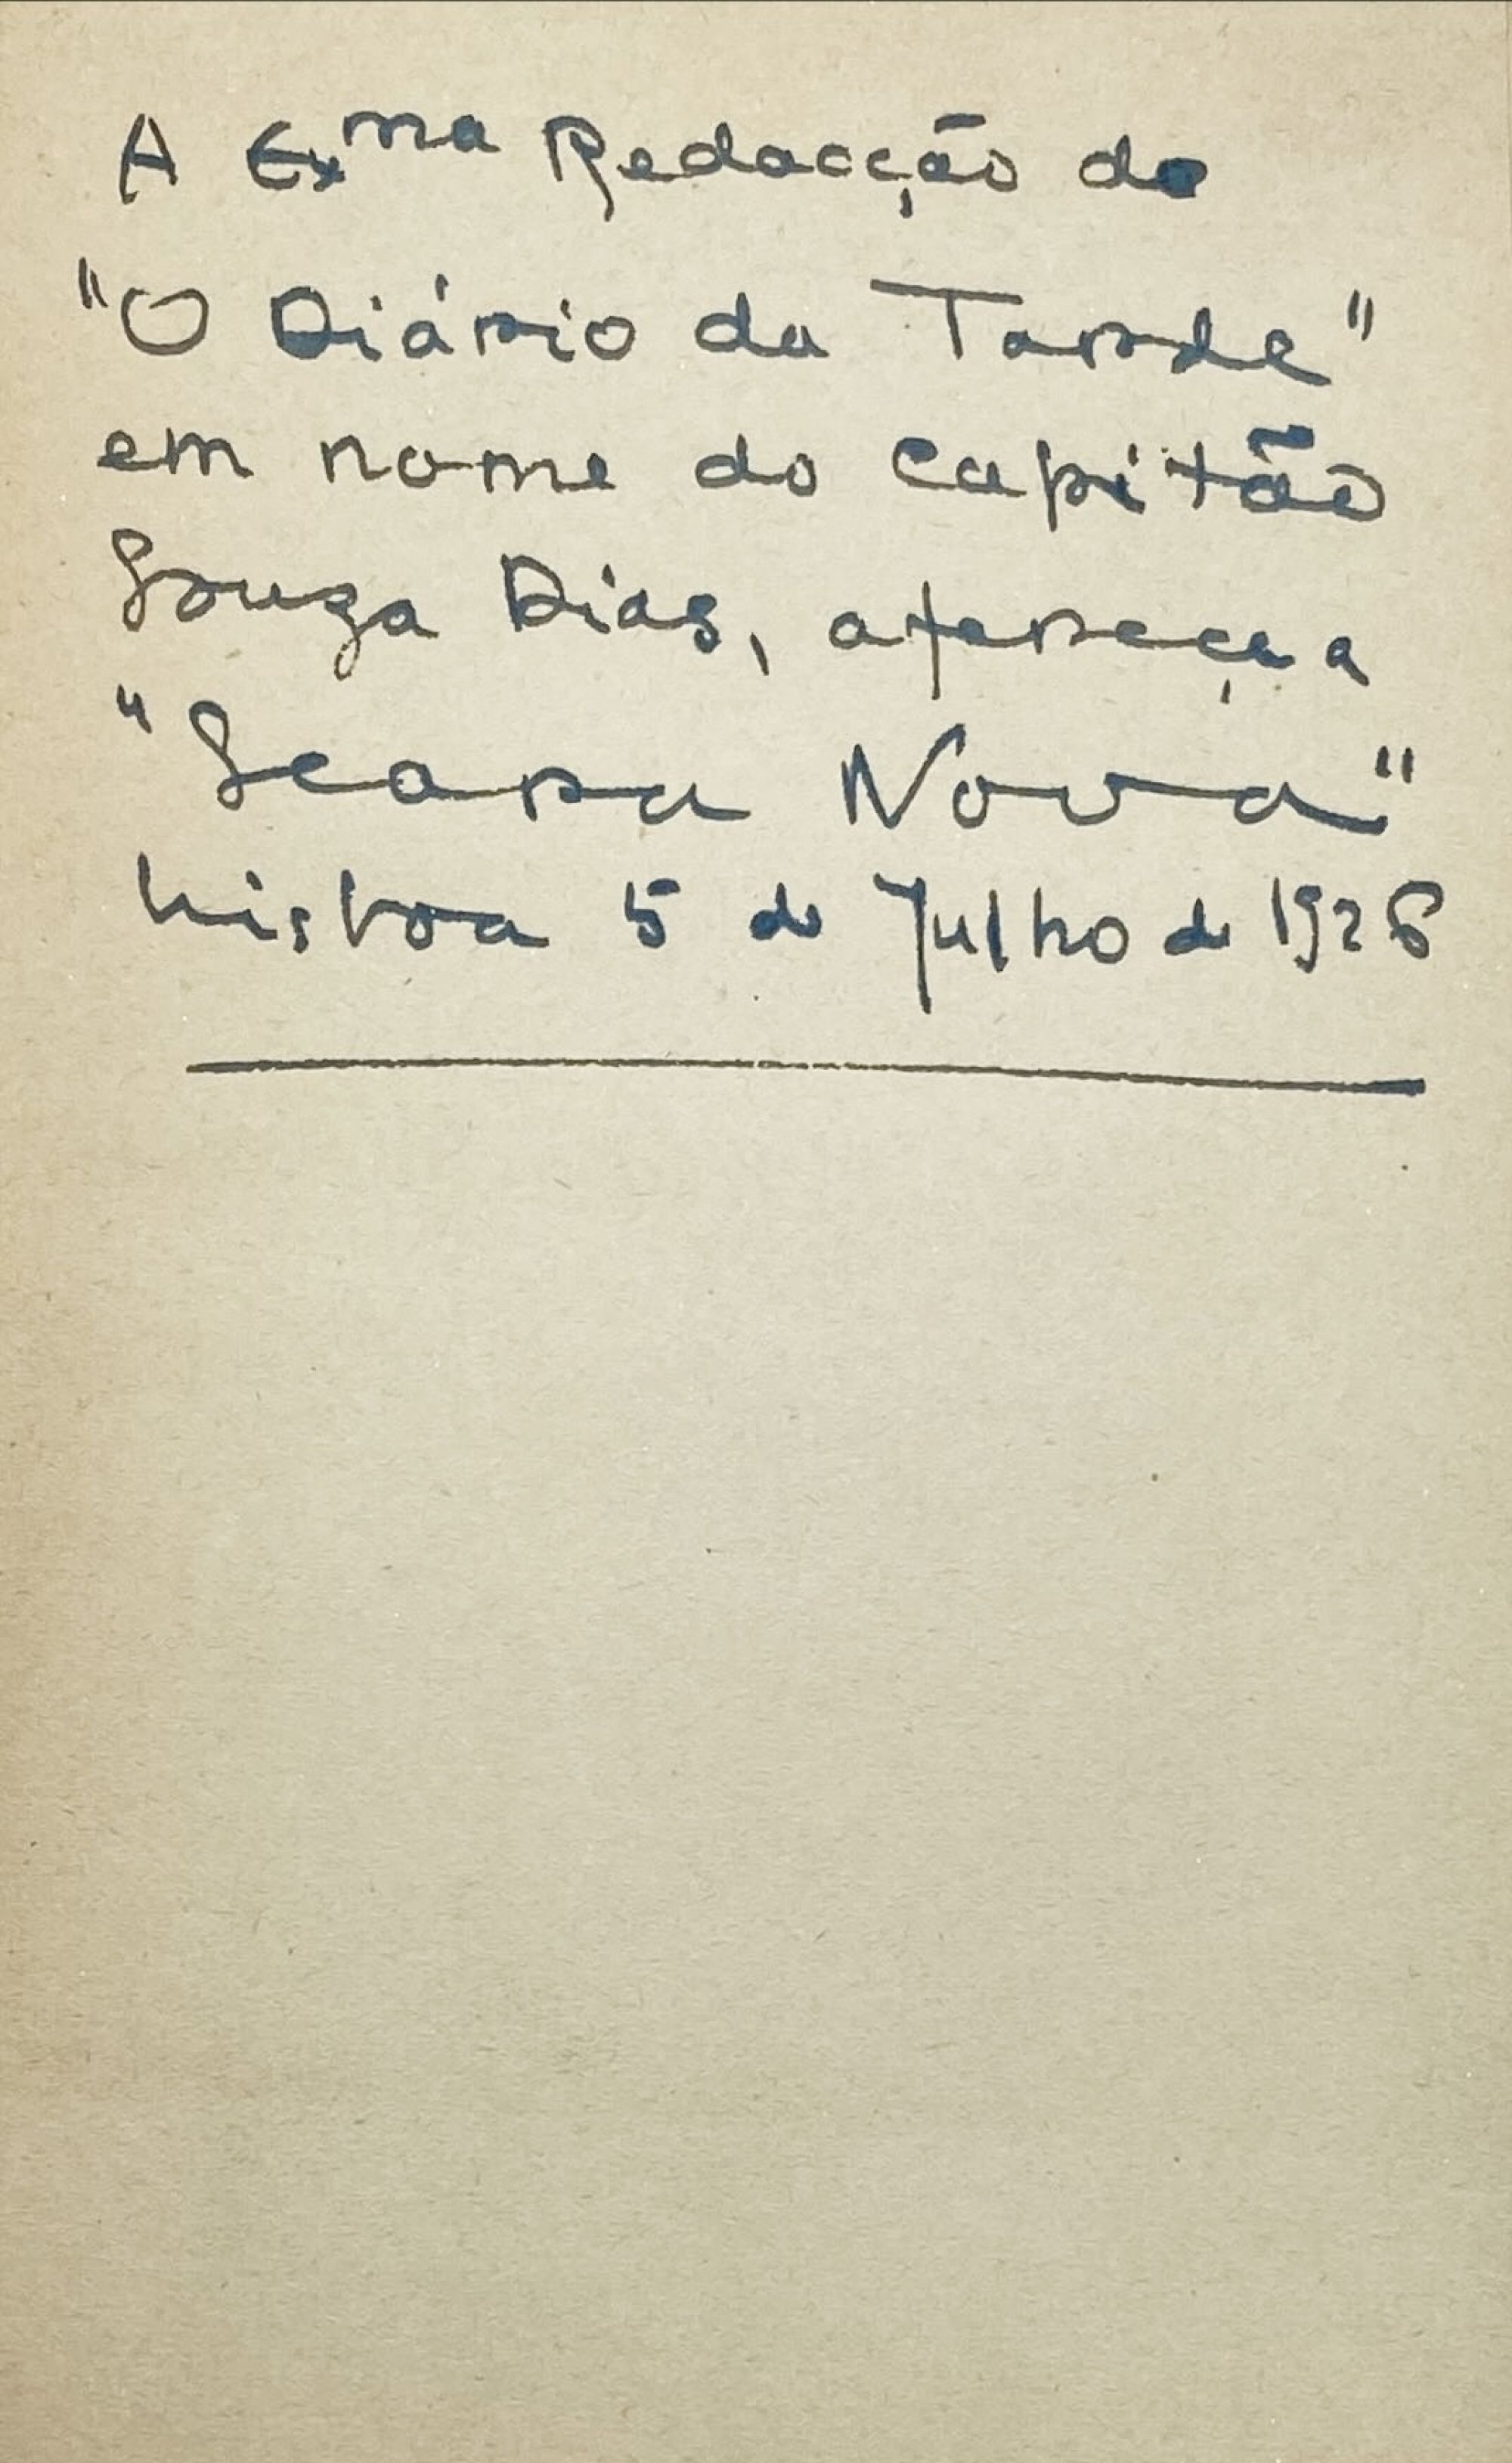 A Exma Redacção do
"O Diário da Tarde"
em nome do capitão
Souza Dias, a
"Seara Nova"
Lisboa 5 de Julho de 1926